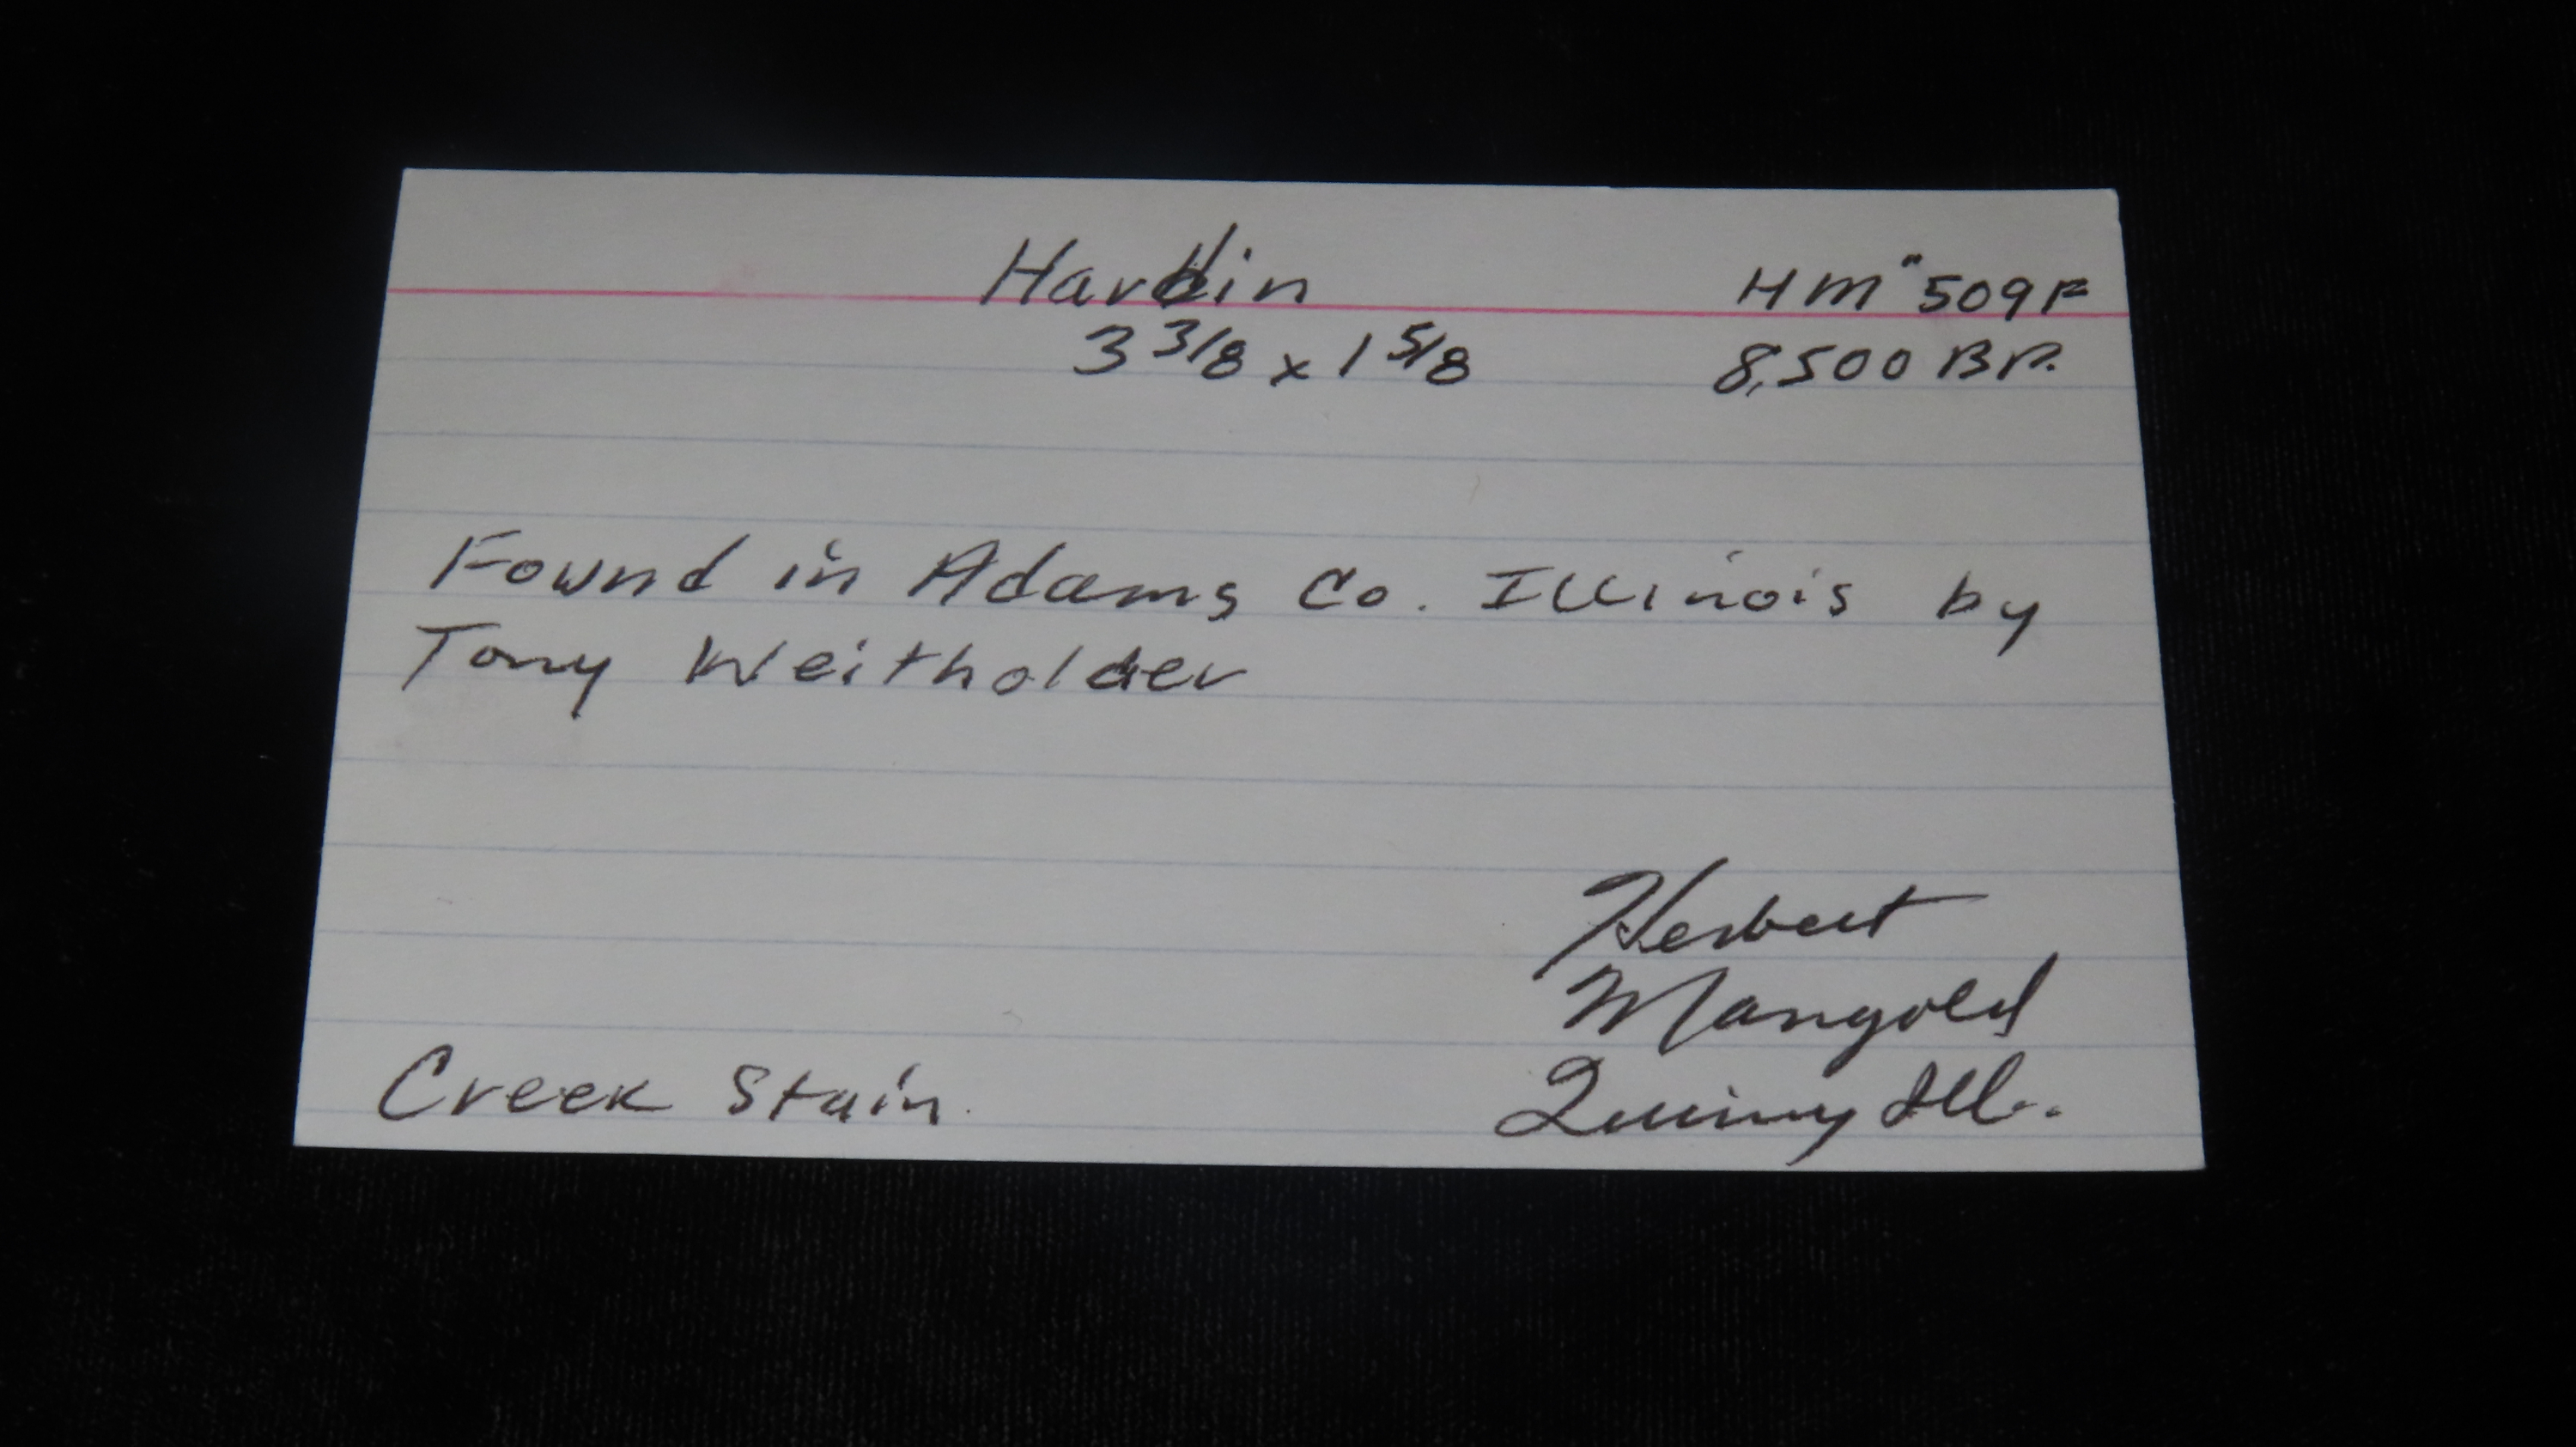 Hardin
HM" 509F
3 3/8 x 1 5/8
8,500 B.P.
Found in Adams Co. Illinois by
Tony Weitholder
Herbert
Mangold
Quincy Ill.
Creek Stain.